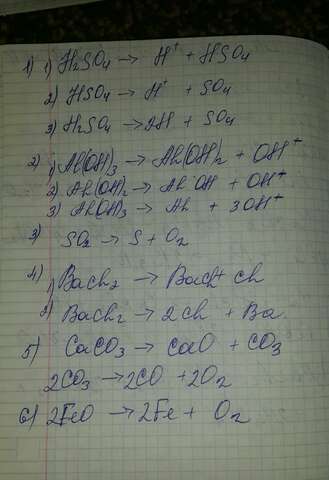 1) 1) H₂SO₄ → H⁺ + HSO₄
2) HSO₄ → H⁺ + SO₄
3) H₂SO₄ → 2H + SO₄
2) 1) Al(OH)₃ → Al(OH)₂ + OH⁺
2) Al(OH)₂ → Al OH + OH⁺
3) Al(OH)₃ → Al + 3OH⁺
3) SO₂ → S + O₂
4) 1) BaCl₂ → BaCl⁺ + Cl
2) BaCl₂ → 2Cl + Ba
5) CaCO₃ → CaO + CO₃
2CO₃ → 2CO + 2O₂
6) 2FeO → 2Fe + O₂